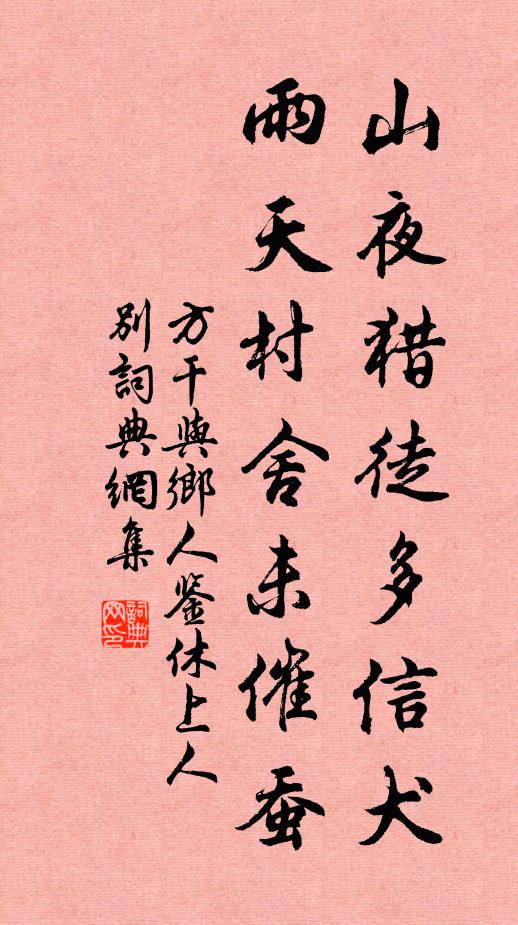 山夜猎徒多信犬
雨天村舍未催蚕
方干與鄉人鉴休上人
别詞典網集
詞典
网印